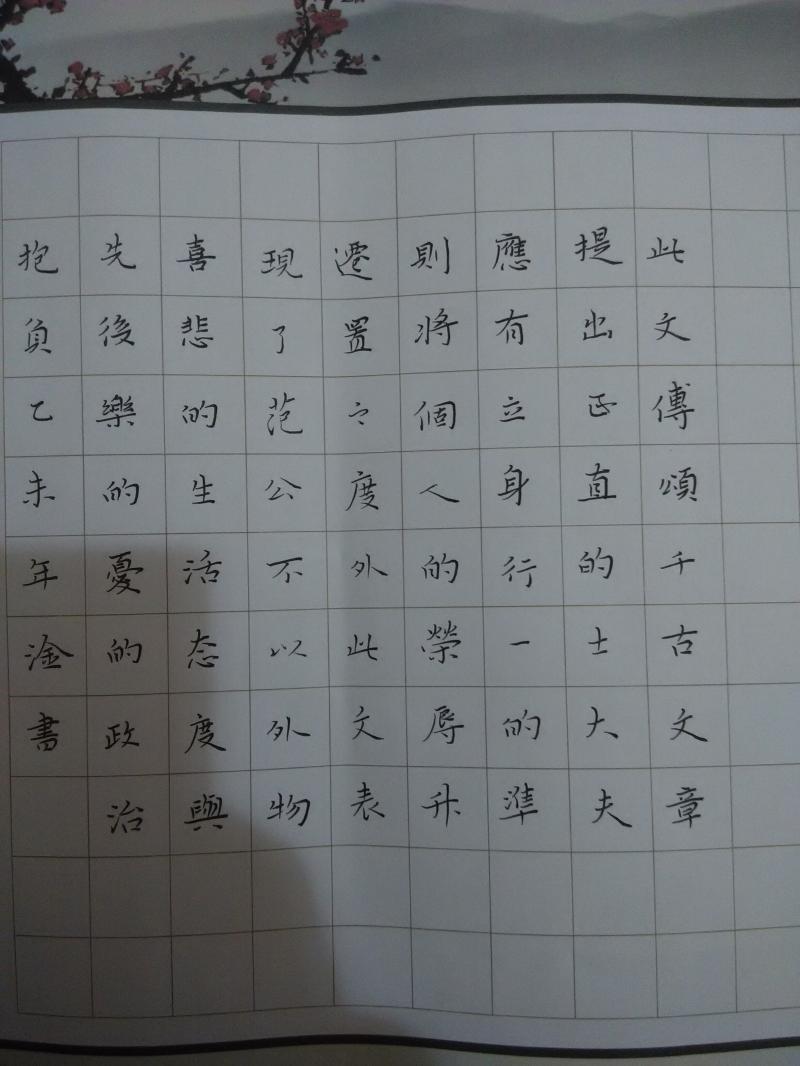 此文傳頌千古文章
提出正直的士大夫
應有立身行一的準
則將個人的榮辱升
遷置之度外此文表
現了范公不以外物
喜悲的生活态度與
先後樂的憂的政治
抱負乙未年淦書